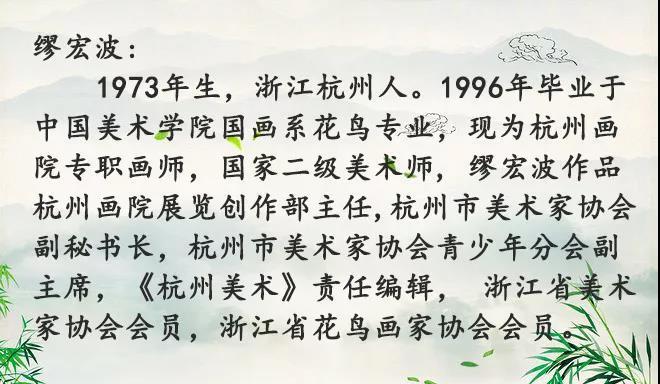 缪宏波：
1973年生，浙江杭州人。1996年毕业于
中国美术学院国画系花鸟专业，现为杭州画
院专职画师，国家二级美术师，缪宏波作品
杭州画院展览创作部主任,杭州市美术家协会
副秘书长，杭州市美术家协会青少年分会副
主席，《杭州美术》责任编辑， 浙江省美术
家协会会员，浙江省花鸟画家协会会员。